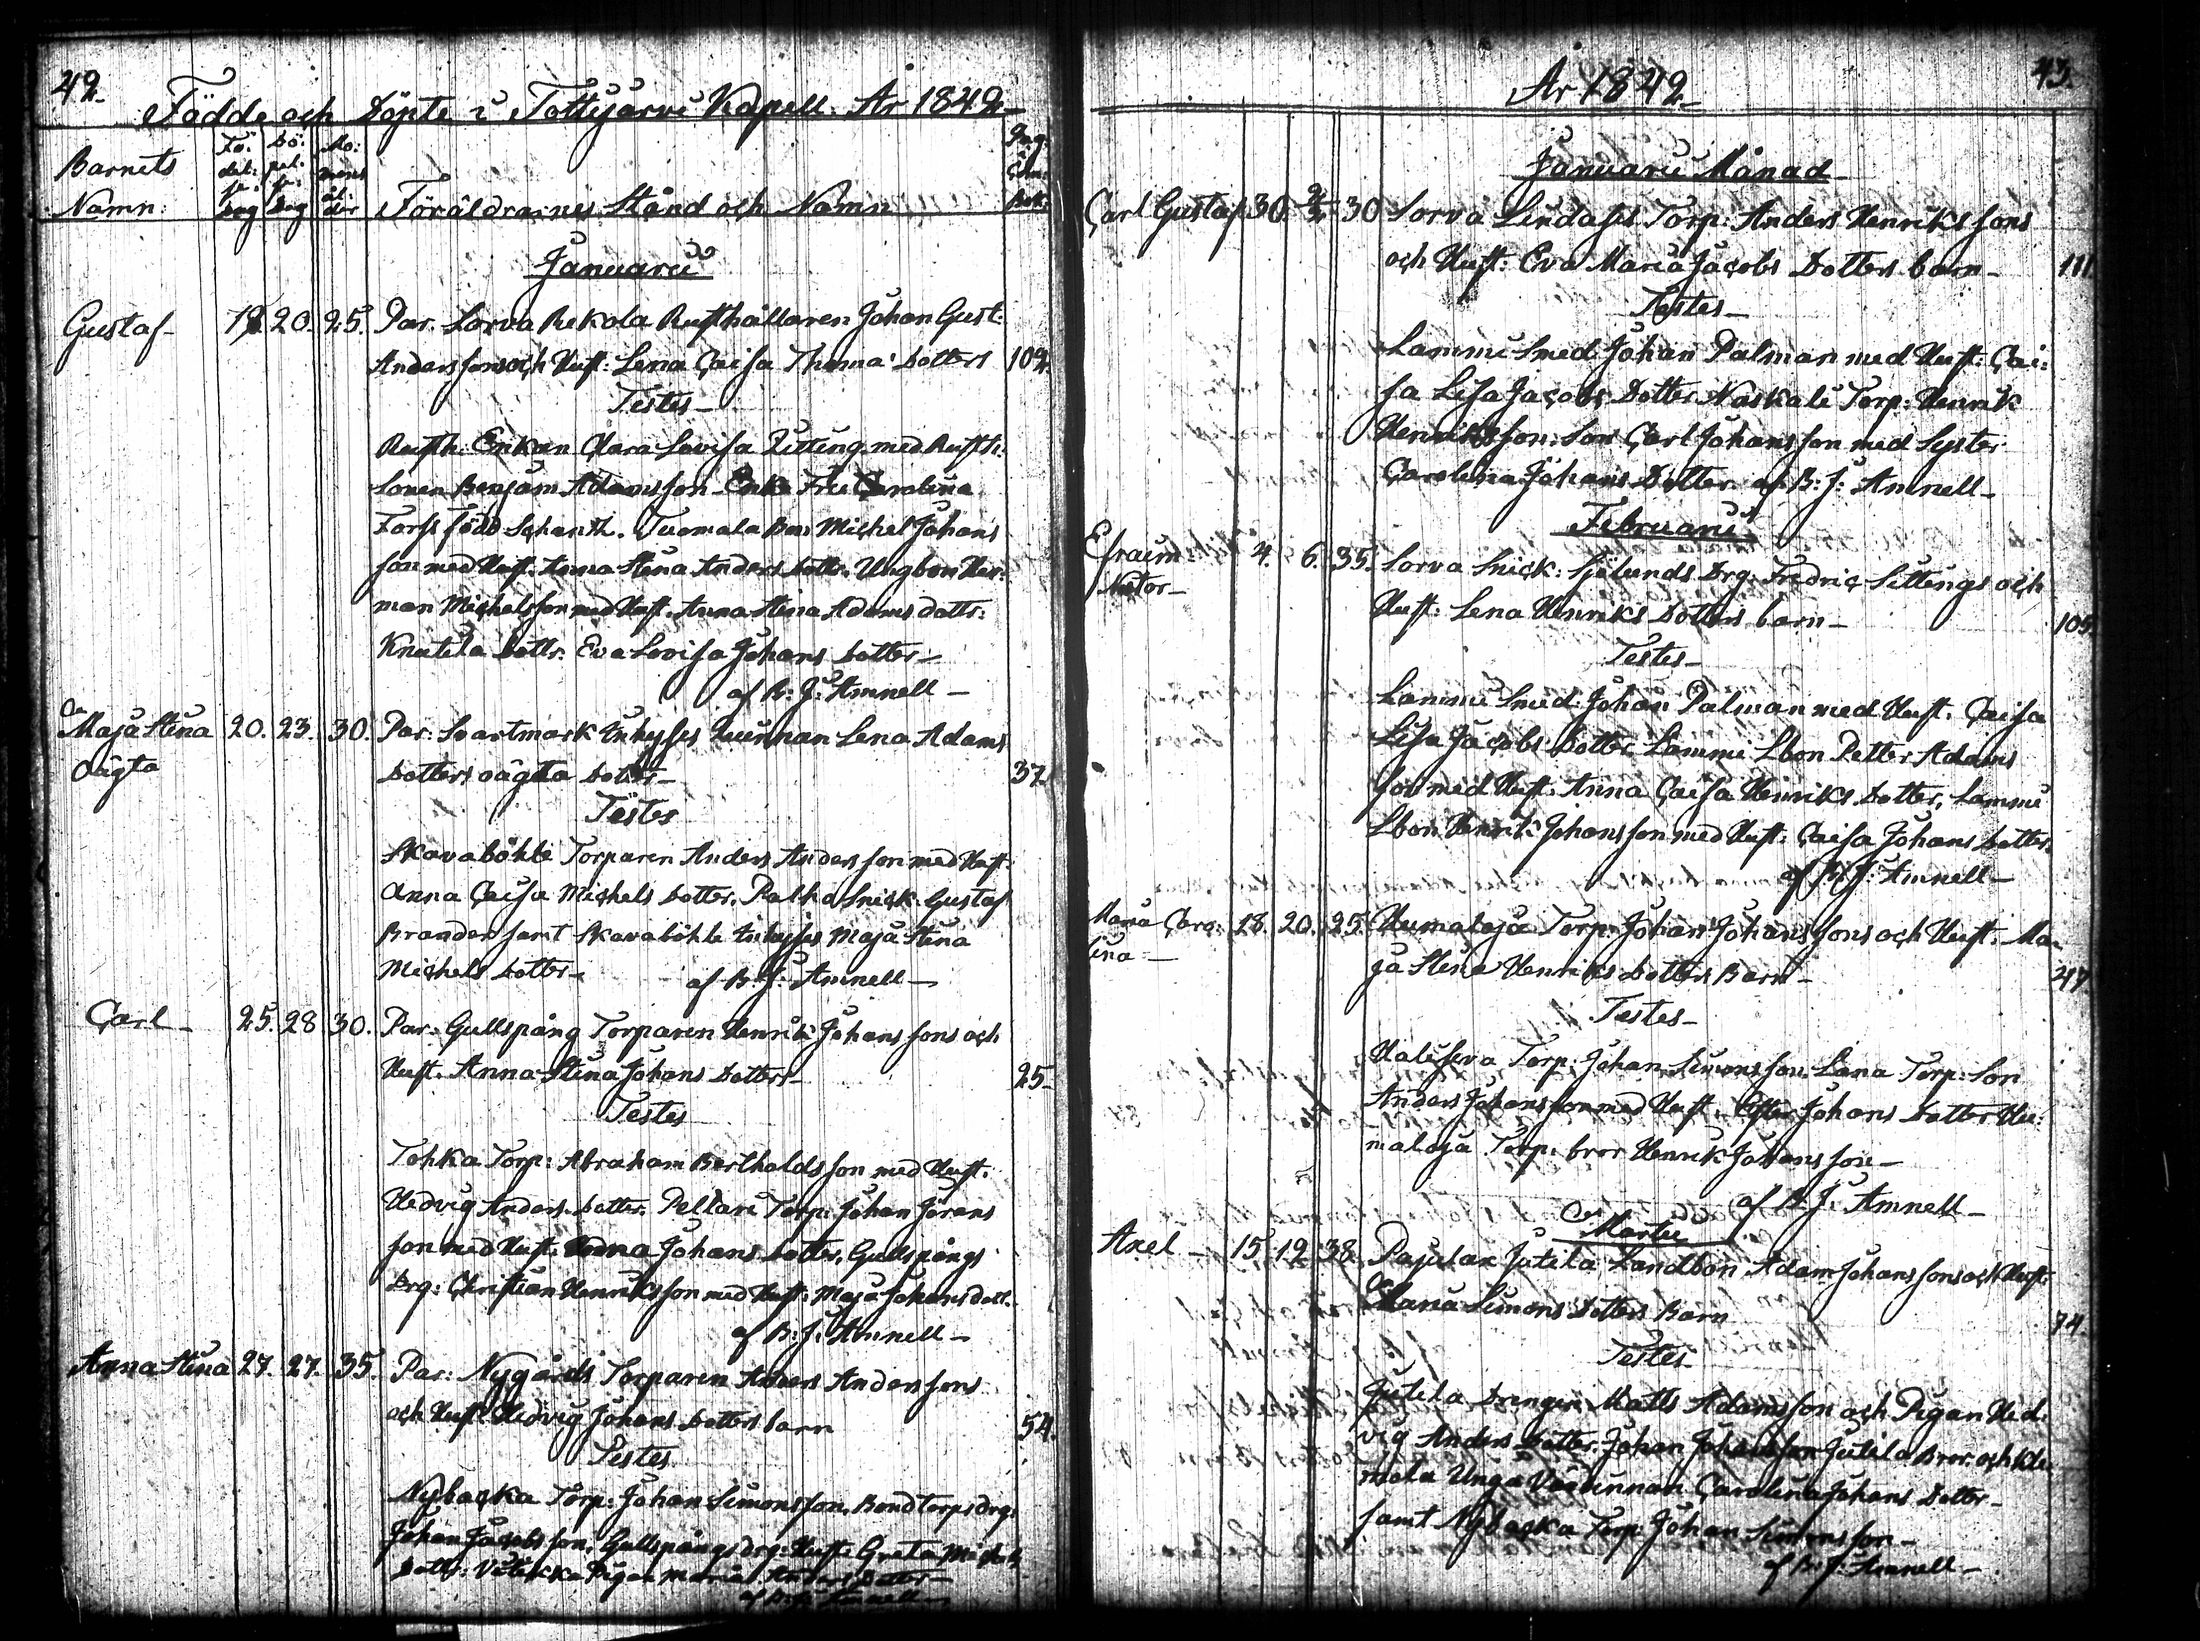 42.
Födde och Döpte i Tottijärvi Kapell. År 1842
Barnets Namn:
Fö: del: se: dag
Dö: pel: se: dag
Mo: drens ål: der
Föräldrarnes Stånd och Namn
Pag. i Com: bok:
Januarii
Gustaf 20. 25. Par. Sorva Rekola Rusthållaren Johan Gust:
Anderssons och Hust: Lena Cajsa Thomæ Dotters 102.
Testes
Rusth: Enkan Clara Lovisa Zitting med Rusth:
Sonen Benjam Adamsson Enke Fru Carolina
Forss född Schanth. Tuomala Bon: Michel Johans
son med Hust. Anna Stina Anders Dottr. Ungbon Her:
man Michelsson med Hust. Anna Stina Adams dottr:
Knutila Dottr. Eva Lovisa Johans Dotter
af B: J: Amnell
Maja Stina 20. 23. 30. Par: Svartmark Inhyses Quinnan Lena Adams
Oägta Dotters oägta Dotter 37.
Testes
Skavaböhle Torparen Anders Andersson med Hust:
Anna Cajsa Michels Dotter. Palho Snick. Gustaf
Brander samt Skavaböhle Inhyses Maja Stina
Michels Dotter af B. J: Amnell
Carl 25. 28 30. Par: Gullspång Torparen Henrik Johanssons och
Hust. Anna Stina Johans Dotters 25.
Testes
Tohka Torp: Abraham Bertholdsson med Hust.
Hedvig Anders. Dotter. Peltari Torp: Johan Jörans
son med Hust. Johans Dotter, Gullspångs
Drg: Christian Henriksson med Hust: Maja Johans dott.
af B: J: Amnell
Anna Stina 27. 27. 35. Par: Nygårds Torparen Anders Anderssons
och Hust. Hedvig Johans Dotters barn 54.
Testes
Nybacka Torp: Johan Simonsson. Bondtorps drg:
Johan Jacobsson, Gullspångs drg: Hust: Greta Michels
Dottr: Pigan Maria Anders Dotter
af B. J: Amnell
43.
År 1842
Januarii Månad
Carl Gustaf 30. 2/2 30 Sorva Lindahls Torp: Anders Henrikssons
och Hust: Eva Maria Jacobs Dotters barn 111.
Testes
Lammi Smed: Johan Palman med Hust: Caj:
sa Lisa Jacobs Dotter Naskali Torp: Henrik
Henriksson: Son Carl Johansson med Syster
Carolina Johans Dotter. af B: J: Amnell
Februarii
Efraim 4. 6. 35. Sorva Snick: Sjölunds Drg: Fredric Sittings och
Nator Hust: Lena Henriks Dotters barn 105.
Testes
Lammi Smed: Johan Palman med Hust. Cajsa
Lisa Jacobs Dotter Lammi Lbon Petter Adams
son med Hust. Anna Cajsa Henriks Dotter, Lammi
Lbon Henrik Johansson med Hust: Cajsa Johans Dotter.
af B: J: Amnell
Maria Caro: 18. 20. 25. Humaloja Torp: Johan Johanssons och Hust. Ma:
lina ja Stina Henriks Dotters Barn 47
Testes
Torp: Johan Simonsson. Lana Torp: Son
Anders Johansson med Hust. Johans Dotter Hu:
maloja Torp: bror Henrik Johansson
af B. J: Amnell
Martii
Axel 15. 19. 38. Pajulax Jutila Landbon Adam Johanssons och Hust.
Maria Simons Dotters Barn 74.
Testes
Jutila Drengen Matts Adamsson och Pigan Hed:
vig Anders Dotter. Johan Johansson Jutila Bror. och
Unga Värdinnan Carolina Johans Dotter
samt Nybacka Torp: Johan Simonsson
af B: J: Amnell